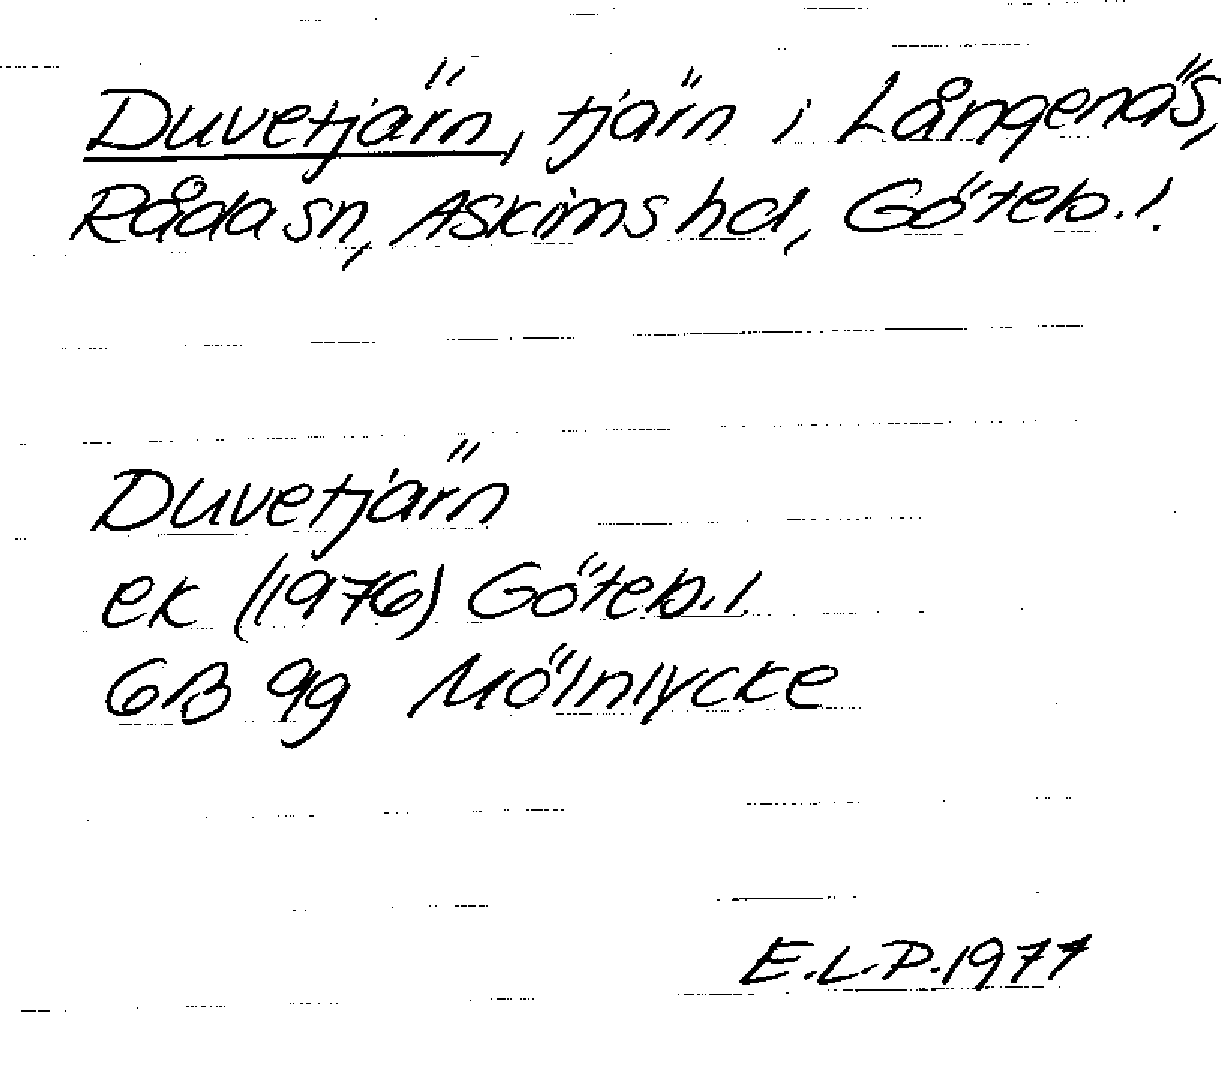 Duvetjärn, tjärn i Långenäs,
Råda sn, Askims hd, Göteb. l.
Duvetjärn
ek (1976) Göteb. l.
6B 9g Mölnlycke
E.L.P. 1977